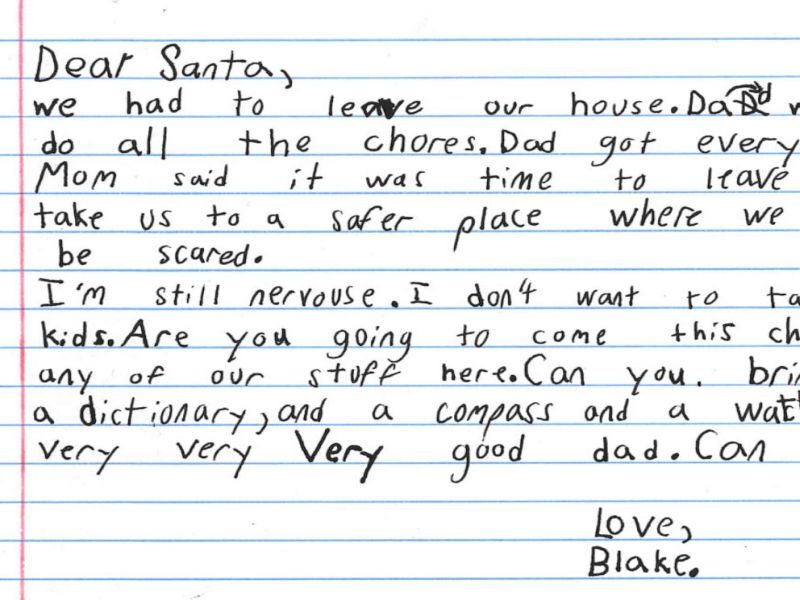 Dear Santa,
we had to leave our house. Dad
do all the chores. Dad got every
Mom said it was time to leave
take us to a safer place where we
be scared.
I'm still nervouse. I don't want to ta
kids. Are you going to come this ch
any of our stuff here. Can you. brin
a dictionary, and a compass and a wat
very very Very good dad. Can
Love,
Blake.